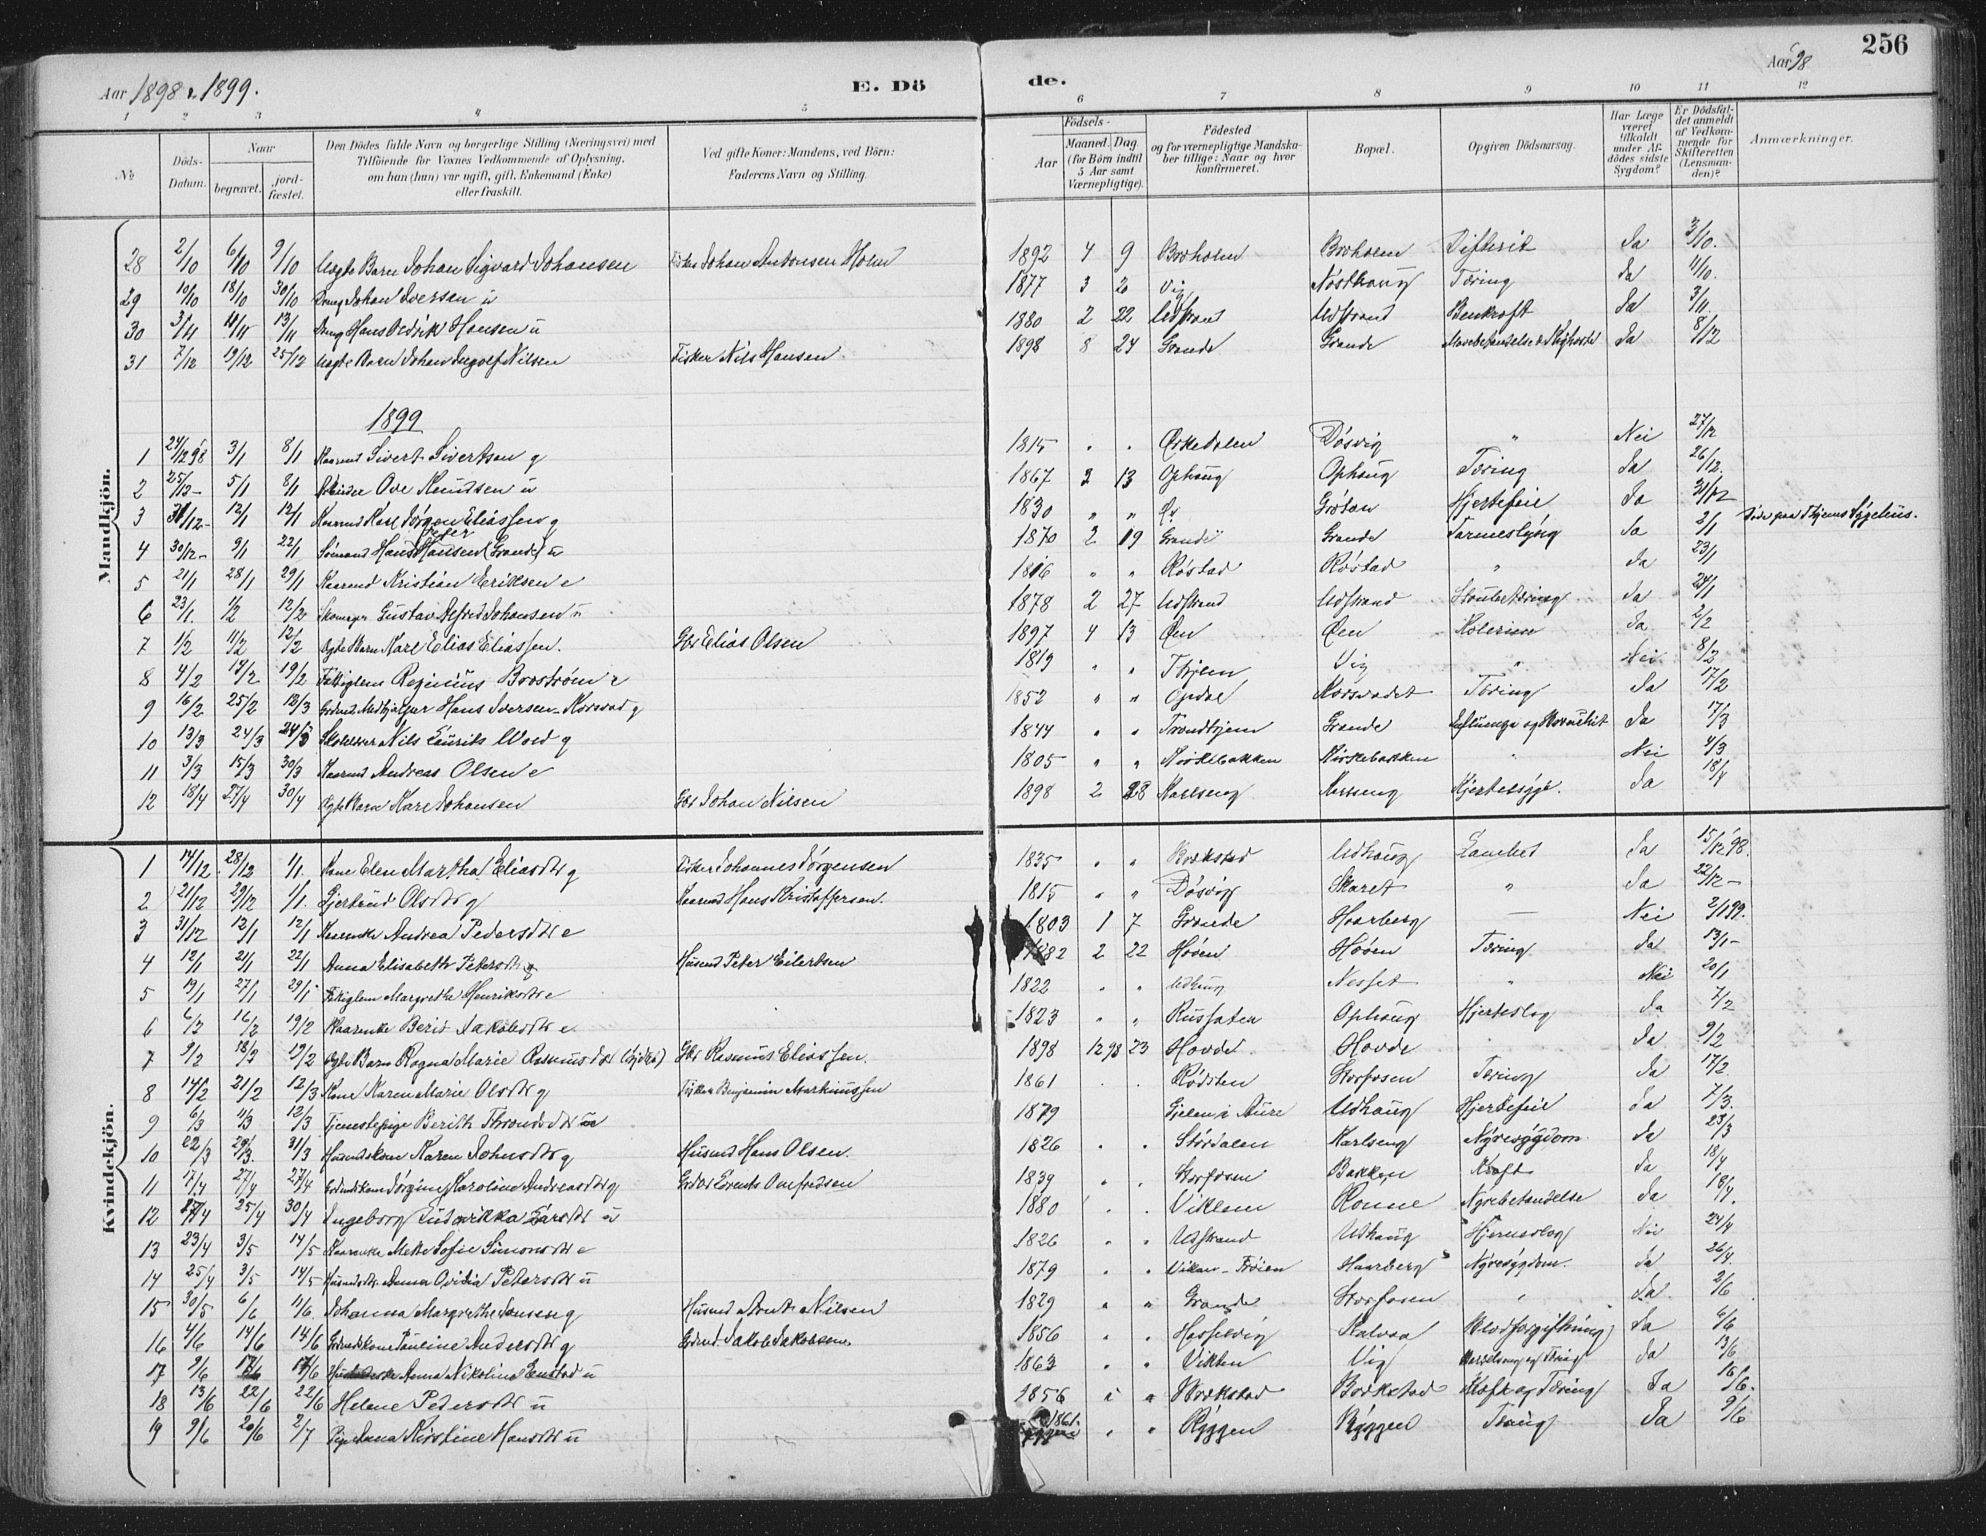 256
Aar 1898 & 1899.
E. Dö
de.
Aar 98
1 2 3 4 5 6 7 8 9 10 11 12
№
Döds-Datum.
Naar
begravet.
jord-fæstet.
Den Dödes fulde Navn og borgerlige Stilling (Næringsvei) med
Tilföiende for Voxnes Vedkommende af Oplysning,
om han (hun) var ugift, gift, Enkemand (Enke)
eller fraskilt.
Ved gifte Koner: Mandens, ved Börn:
Faderens Navn og Stilling.
Födsels-
Aar
Maaned. Dag
(for Börn indtil
5 Aar samt
Værnepligtige).
Födested
og for værnepligtige Mandska-
ber tillige: Naar og hvor
konfirmeret.
Bopæl.
Opgiven Dödsaarsag.
Har Læge
været
tilkaldt
under Af-
dödes sidste
Sygdom?
Er Dödsfal-
det anmeldt
af Vedkom-
mende for
Skifteretten
(Lensman-
den)?
Anmærkninger.
Mandkjön.
28 2/10 6/10 9/10 Ægte Barn Johan Sigvard Johansen Fisker Johan Antonsen Holm 1892 4 9 Broholm Broholm Difterit Ja 3/10.
29 10/10 18/10 30/10 Dreng Johan Iversen u 1877 3 2 Vig Nøsthaug Tæring Ja 11/10.
30 3/11 11/11 13/11 Dreng Hans Hansen u 1880 2 22 Udstrand Udstrand Benkræft Ja 3/11.
31 7/12 19/12 25/12 Ægte Barn Johan Ingolf Nilsen Fisker Nils Hansen 1898 8 24 Grande Grande Ja 8/12
1899
1 24/12 98 3/1 8/1 Kaarmd Sivert Sivertsen g 1815 " " Ørkedalen Døsvig " Nei 27/12
2 25/12 - 5/1 8/1 Ove Knudsen u 1867 2 13 Ophaug Ophaug Tæring Ja 26/12.
3 31/12 - 12/1 12/1 Kaarmd Karl Jørgen Eliassen g 1830 " " Grøtan Hjertefeil Ja 31/12
4 30/12 - 9/1 22/1 Sømand Hans Peter Hansen (Grande) u 1870 2 19 Grande Grande Tarmeslyng Ja 2/1 Døde paa Thjems Sygehus.
5 21/1 28/1 29/1 Kaarmd Kristian Eriksen e 1816 " " Røstad Røstad " Ja 23/1
6 23/1. 1/2 12/2 Skomager Gustav Alfred Johansen u 1878 2 27 Udstrand Udstrand Strubetæring Ja 24/1
7 1/2 11/2 12/2 Ægte Barn Karl Elias Eliassen. Gbr Elias Olsen 1897 4 13 Øen Øen Kolerine Ja 2/2
8 4/2 14/2 19/2 Fattiglem Reginius Brostrøm e 1819 " " Thjem Vig " Nei 8/2
9 16/2 25/2 12/3 Hans Iversen Korsvad g 1852 " " Opdal Korsvadet Tæring Ja 17/2
10 13/3 24/3 24/3 Nils Laurits Wold g 1844 " " Trondhjem Grande Ja 17/3
11 3/3 15/3 30/3 Kaarmd Andreas Olsen e 1805 " " Kirkebakken Kirkebakken " Nei 4/3
12 18/4 27/4 30/4 Ægte Barn Karl Johansen Gbr Johan Nilsen 1898 2 28 Karlseng Karlseng Hjertesyge. Ja 18/4
Kvindekjön.
1 14/12. 28/12 1/1. Kone Elen Martha Eliasdtr g Fisker Johannes Jørgensen 1835 " " Brekstad Udhaug Lamhet Ja 15/12 98.
2 21/12 29/12 1/1. Gjertrud Olsdtr g Kaarmd Hans Kristoffersen. 1815 " " Døsvig Skaret " Ja 22/12 -
3 31/12 12/1 12/1 Kaarenke Andrea Pedersdtr e 1803 1 7 Grande Haarberg — Nei 2/1 99.
4 12/1 21/1 22/1 Anna Elisabeth Petersdtr Husmd Peter Eilertsen 1882 2 22 Hoven Hoven Tæring Ja 13/1 -
5 19/1 27/1 29/1 Fattiglem Margrethe Henriksdtr e 1822 " " Udhaug Nesset " Nei 20/1
6 6/2 16/2 19/2 Kaarenke Berit Jakobsdtr e 1823 " " Russaten Ophaug Hjerteslag Ja 7/2
7 9/2 18/2 19/2 Ægte Barn Ragna Marie Rasmusdtr Gbr Rasmus Eliassen. 1898 12 98 23 Hovde Hovde " Ja 9/2
8 14/2 21/2 12/3 Kone Karen Marie Olsdtr g Fisker Benjamin Markussen 1861 " " Storfosen Tæring Ja 17/2
9 6/3 11/3 12/3 Tjenestepige Berith u 1879 Gjelen i Aure Udhaug Hjertefeil Ja 7/3.
10 22/3 29/3. 31/3 Husmdskone Karen Johnsdtr g Husmd Hans Olsen. 1826 " " Størdalen Karlseng Nyresygdom Ja 23/3
11 17/4 27/4 27/4 Jørgine Karoline Andreasdtr g 1839 " " Storfosen Bakken Kræft Ja 18/4
12 17/4 25/4 30/4 Ingeborg Ludvikka Larsdtr u 1880 " " Viklem Ronne Nyrebetændelse Ja 18/4.
13 23/4 3/5 14/5 Kaarenke Mette Sofie Simonsdtr e 1826 " " Udstrand Udhaug Hjerneslag Nei 24/4
14 25/4 3/5 14/5 Anna Ovidia Petersdtr u 1879 " " Vikan - Frøien Haarberg Nyresygdom. Ja 26/4.
15 30/5 6/6 11/6. Johanna Margrethe Jonsen g Husmd Arnt Nilsen 1829 " " Grande Storfosen " Ja. 2/6
16 4/6 14/6 14/6 Pauline Andersdtr g Jakob Jakobsen 1856 " " Hasselvig Kalvaa Blodforgiftning Ja 6/6
17 9/6 17/6 17/6 Anna Nikoline Enstad u 1863 " " Viklem Vig Ja 13/6
18 13/6 22/6 22/6 Helene Petersdtr u 1856 " " Brekstad Brekstad Kræft og Tæring Ja 16/6.
19 9/6 20/6 2/7 Pige Anna Kirstine Hansdtr u 1861. " " Ryggen Ryggen Tæring Ja 9/6